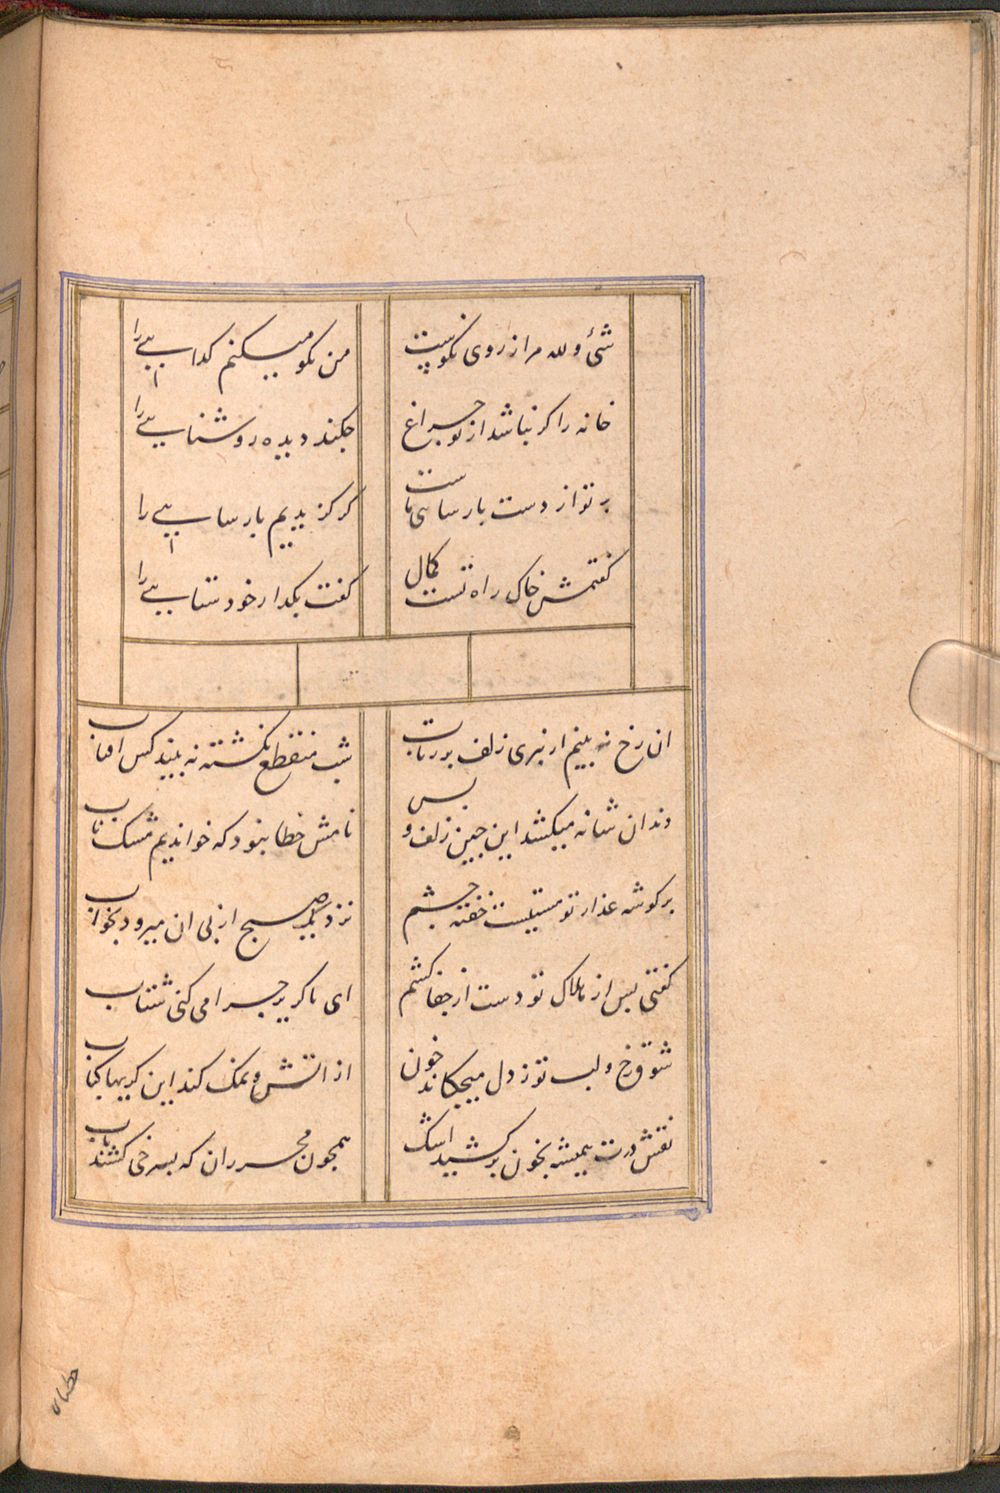 شیء ولله مرا ز روی نکوست
من نکو میکنم کدایی را
خانه را کر نباشد از تو چراغ
چکند دیده روشنایی را
بر تو از دست پارسایی ماست
کر کزیدیم پارسایی را
کفتمش خاک راه تست کمال
کفت بکذار خودستایی را
ان رخ نه بینم ار نبری زلف بر رتاب
شب منقطع نکشته نه بیند کس افتاب
دندان شانه میکشد این چین زلف و بس
نامش خطا بنود که خواندیم مشک ناب
بر کوشه عذار تو مستیست خفته چشم
نزدیک صبح از پی ان میرود بخواب
کفتی پس از هلاک تو دست از جفا کشم
ای ناکزیر چرا می کنی شتاب
شوق رخ و لب تو ز دل میچکاند خون
از اتش و نمک کند این کریها کباب
نقش درت همیشه بخون برکشید اشک
همچون محرران که بسرخی کشند باب
خطاب